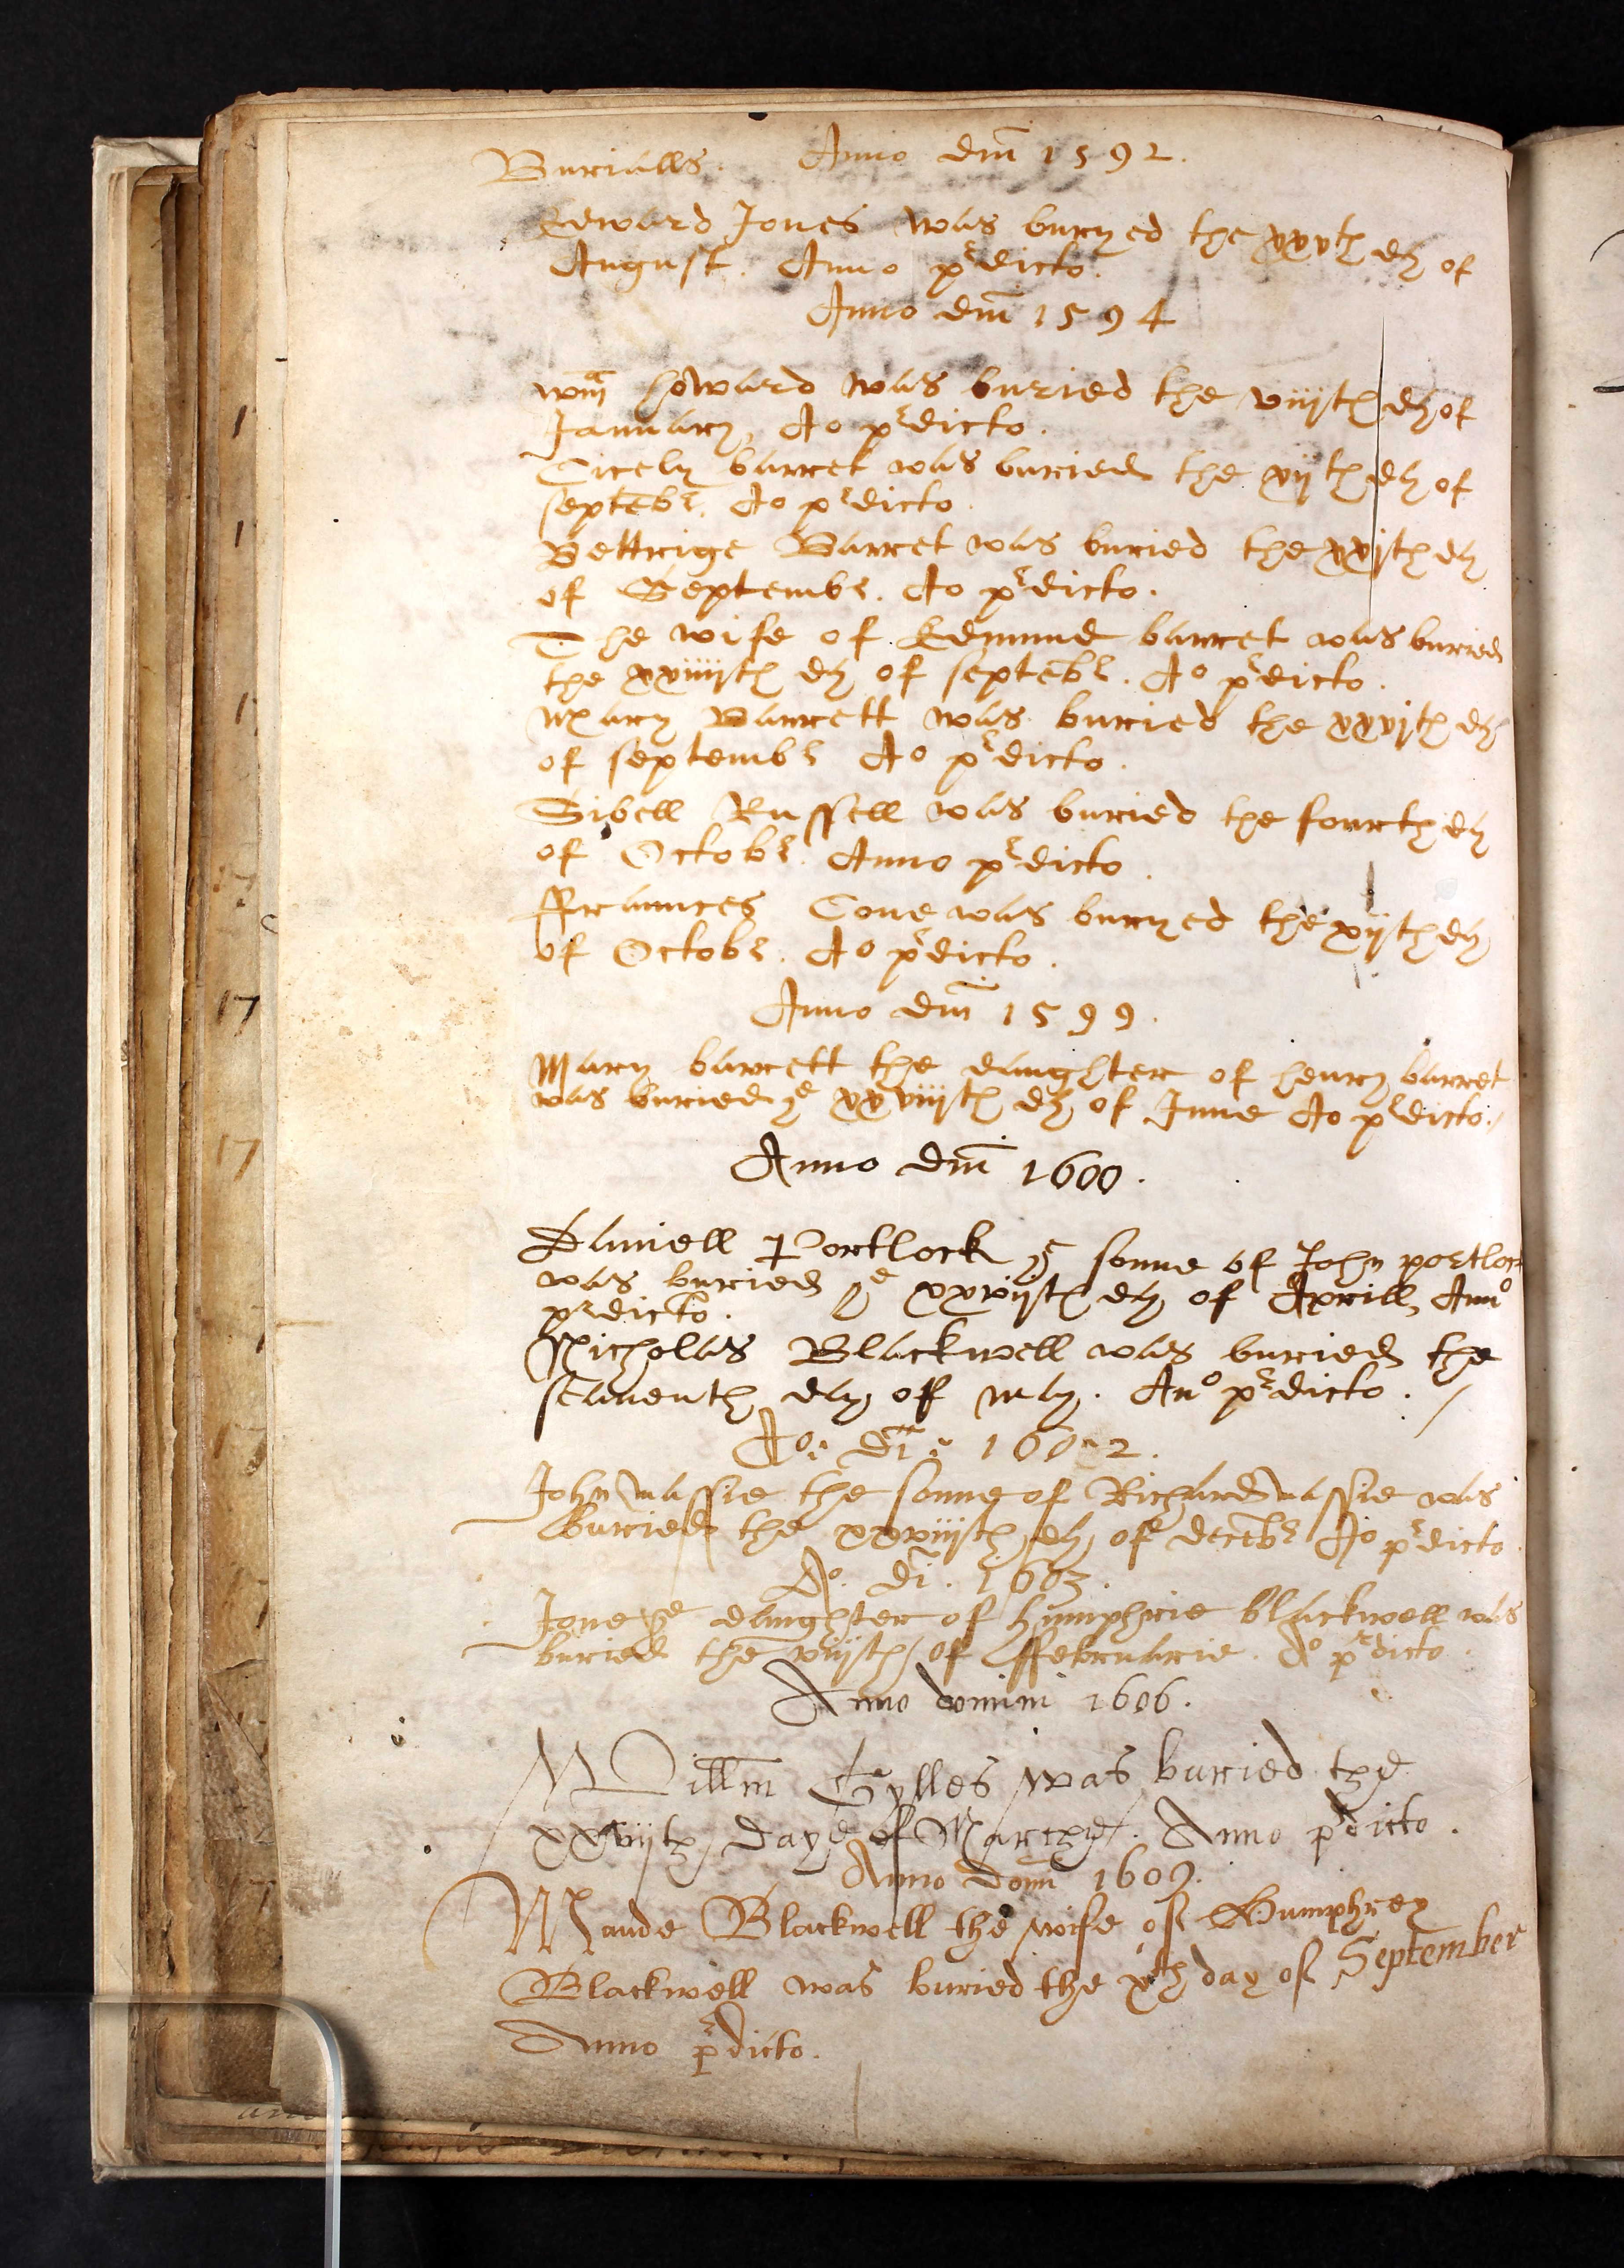 Burialls. Anno dm̄ 1592.
Edward Jones was buryed the xxvth dy of
August. Anno p̄dicto.
Anno dm̄ 1594
Wm̄ howard was buried the viijth dy of
January, Ao p̄dicto.
Cicely barret was buried the xijth dy of
septēbr. Ao p̄dicto.
Bettrige Barret was buried the xxjth dy
of Septembr. Ao p̄dicto.
The wife of Edmund barret was buried
the xxiiijth dy of septēbr. Ao p̄dicto.
Mary Barrett was buried the xxvjth dy
of septembr Ao p̄dicto.
Sibell Russell was buried the fourth dy
of Octobr. Anno p̄dicto.
ffraunces Cone was buryed the xijth dy
of Octobr. Ao p̄dicto.
Anno dm̄ 1599.
Mary barrett the daughter of henry barret
was buried ye xxviijth dy of June Ao p̄dicto.
Anno dm̄ 1600.
Daniell Portlock ye sonne of John portlock
was buried ye xxvijth dy of Aprill, Anno
p̄dicto.
Nicholas Blackwell was buried the
seaventh day of may. Ano p̄dicto.
Ao: dī: 1602.
John massie the sonne of Richard massie was
buried the xxviijth dy of decēbr Ao p̄dicto.
Ao. dī. 1603.
Jone ye daughter of humphrie blackwell was
buried the viijth of ffebruarie. Ao p̄dicto.
Anno domini 1606.
Willm̄ Gylles was buried the
xxvijth daye of Marche. Anno p̄dicto.
Anno dom̄ 1609.
Maude Blackwell the wife of Humphrey
Blackwell was buried the xth day of September
Anno p̄dicto.
17
17